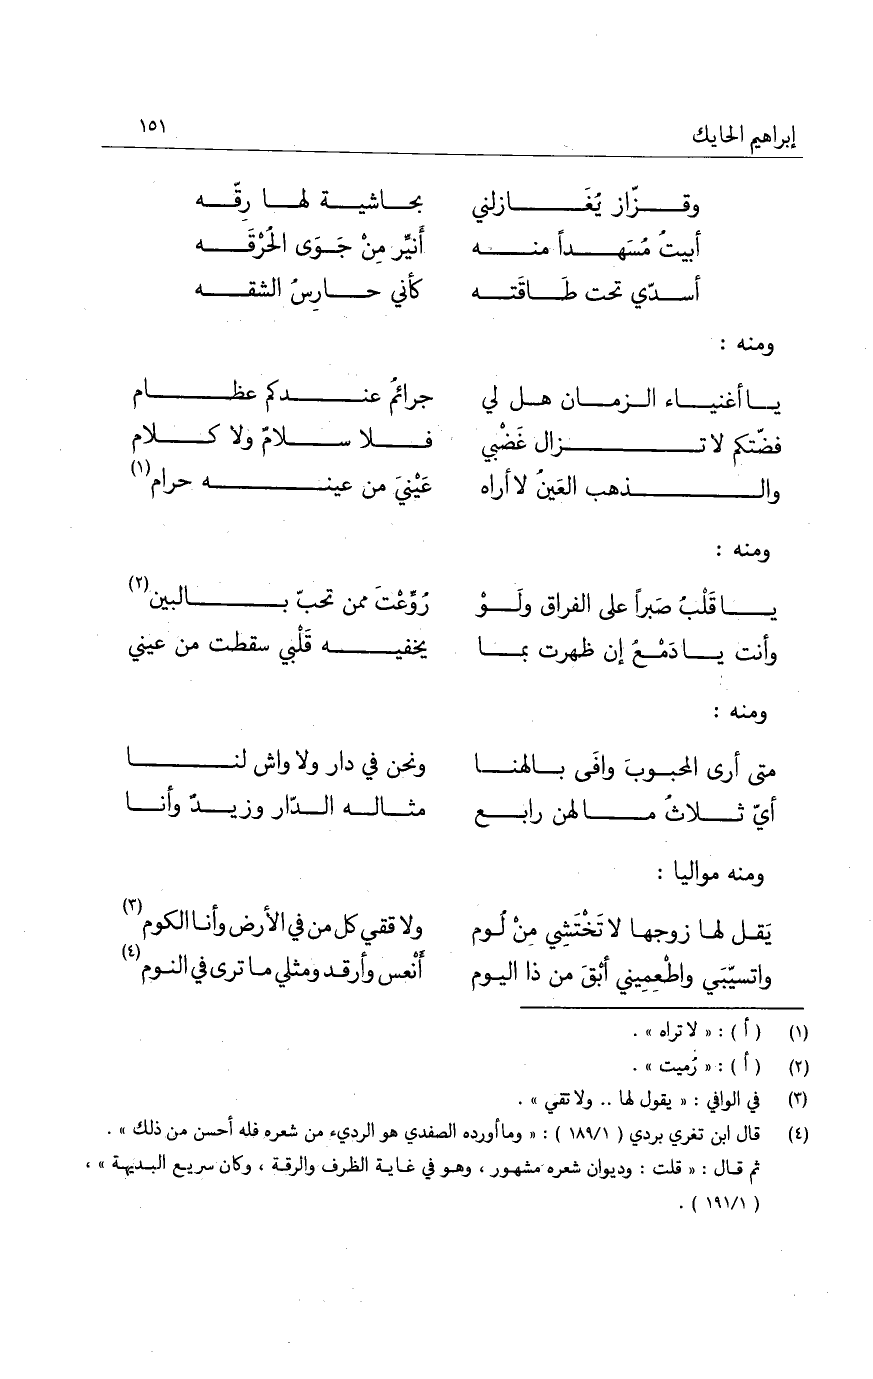 إبراهيم الحايك ١٥١
وقزّاز يُغَازلني بحاشية لها رقّه
أبيتُ مُسَهداً منه أَنيِّر مِنْ جَوَى الحُرْقَه
أسدّي تحت طَاقَته كأني حارسُ الشقه
ومنه :
يا أغنياء الزمان هل لي جرائمُ عندكم عظام
فضّتكم لا تزال غَضْبي فلا سلامٌ ولا كلام
والذهب العَينُ لا أراه عَيْنيَ من عينه حرام (١)
ومنه :
يا قَلْبُ صَبراً على الفراق ولَوْ رُوِّعْتَ ممن تحبّ بالبين (٢)
وأنت يا دَمْعُ إن ظهرت بما يخفيه قَلْبي سقطت من عيني
ومنه :
متى أرى المحبوبَ وافَى بالهنا ونحن في دار ولا واش لنا
أيّ ثلاثُ ما لهن رابع مثاله الدّار وزيدٌ وأنا
ومنه مواليا :
يَقل لها زوجها لا تَخْتَشِي مِنْ لُوم ولا ققي كل من في الأرض وأنا الكوم (٣)
واتسيّبَي واطْعِميني أبْقَ من ذا اليوم أَنْعس وأرقد ومثلي ما ترى في النوم (٤)
(١) ( أ ) : « لا تراه » .
(٢) ( أ ) : « رُميت » .
(٣) في الوافي : « يقول لها .. ولا تقي » .
(٤) قال ابن تغري بردي ( ١٨٩/١ ) : « وما أورده الصفدي هو الرديء من شعره فله أحسن من ذلك » .
ثم قال : « قلت : وديوان شعره مشهور ، وهو في غاية الظرف والرقة ، وكان سريع البديهة » ،
( ١٩١/١ ) .